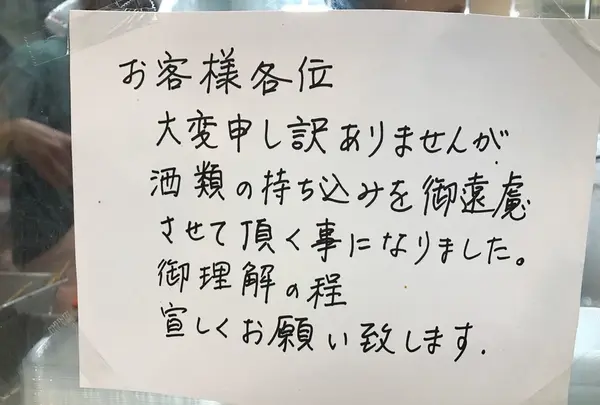 お客様各位
大変申し訳ありませんが
酒類の持ち込みを御遠慮
させて頂く事になりました。
御理解の程
宜しくお願い致します.